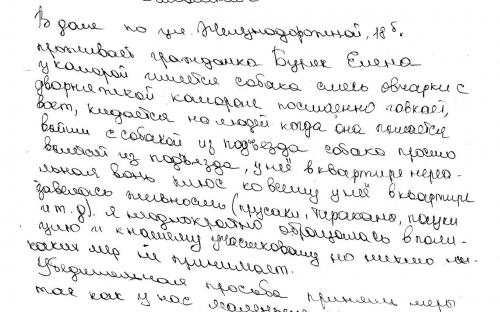 В доме по ул. Железнодорожной, 18б.
проживает гражданка Буряк Елена
у которой имеется собака смесь овчарки с
дворнягой которая постоянно гавкает,
воет, кидается на людей когда она пытается
выйти с собакой из подъезда собака просто
валит из подъезда, у неё в квартире нереа-
льная вонь плюс ко всему у неё в квартире
завелась живность (прусаки, тараканы, пауки
и т.д). Я неоднократно обращалась в поли-
цию и к нашему участковому но никто ни-
каких мер не принимает.
Убедительная просьба принять меры
так как у нас маленькие